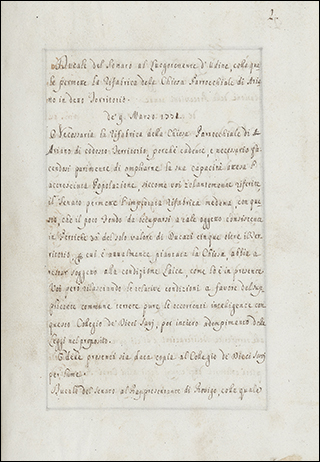 2.
Ducali del Senato al Luogotenente d'Udine, colle qua-
li permette la Rifabrica della Chiesa Parrocchiale di Arte-
no in detto Territorio.
de' 9. Marzo. 1771.
Necessaria la Rifabrica della Chiesa Parrocchiale di A-
di codesto Territorio, perchè cadente, e necessario fa-
cendosi parimente di ampliarne la sua capacità attesa l'
accresciuta Popolazione, siccome voi zelantemente riferite,
il Senato permette l'ingionta Rifabrica medema, con que-
sto, che il poco Fondo da occuparsi a tale oggetto consistente
in Pertiche del solo valore di Ducati cinque oltre il Ter-
ritorio, su cui è attualmente piantata la Chiesa, abbia a
restar soggetto alla condizione Laica, come lo è in presente.
Voi però rilasciando le relative condizioni a favore del sup-
plicante commune tenete pure le occorrenti intelligenze con
questo Collegio de' Dieci Savj, per intiero adempimento delle
Leggi nel proposito.
E delle presenti sia data copia al Collegio de' Dieci Savj
per lume.
Ducale del Senato al Rappresentante di Rovigo, colle quali